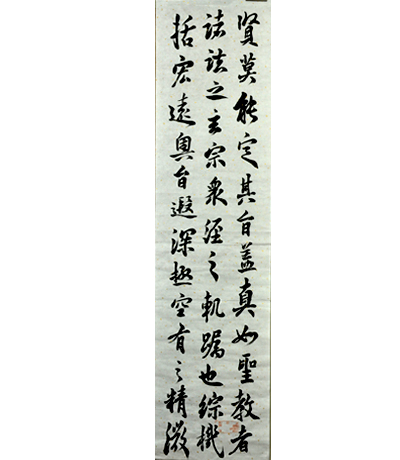 賢莫能定其旨蓋真如聖教者
諸法之玄宗衆經之軌躅也綜機
括宏遠奧旨遐深極空有之精微